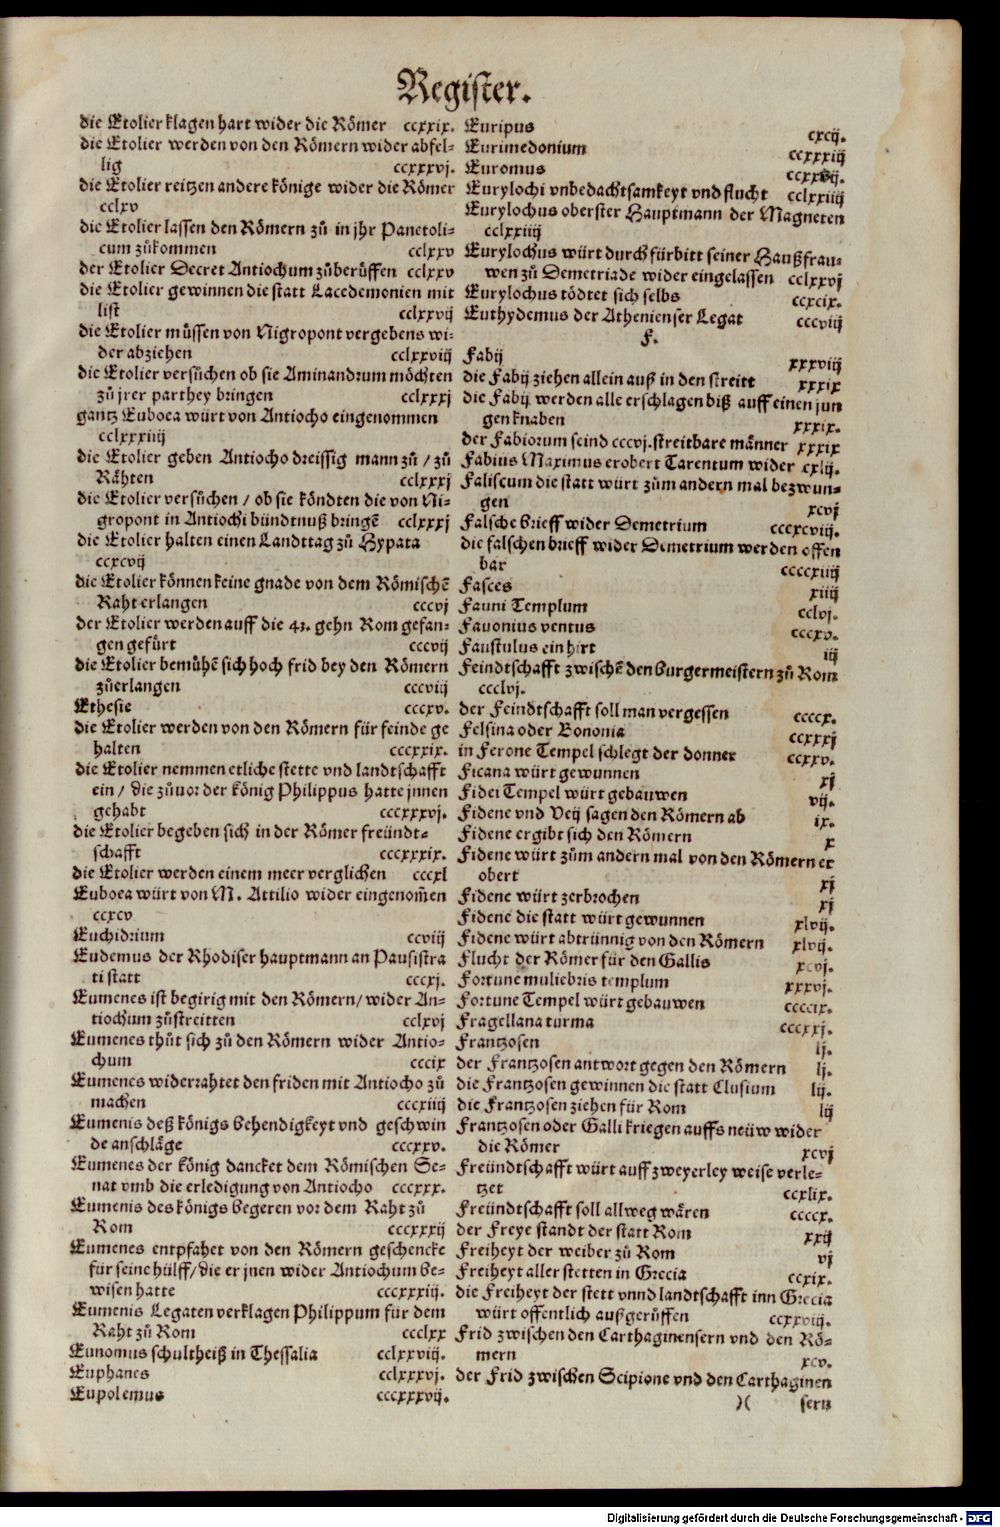 Register.
die Etolier klagen hart wider die Römer ccxxix.
die Etolier werden von den Römern wider abfel-
lig ccxxxvj.
die Etolier reitzen andere könige wider die Römer
cclxv
die Etolier lassen den Römern zů in jhr Panetoli-
cum zůkommen cclxxv
der Etolier Decret Antiochum zůberůffen cclxxv
die Etolier gewinnen die statt Lacedemonien mit
list cclxxvij
die Etolier müssen von Nigropont vergebens wi-
der abziehen cclxxviij
die Etolier versůchen ob sie Aminandrum möchten
zů jrer parthey bringen cclxxxj
gantz Euboea würt von Antiocho eingenommen
cclxxxiiij
die Etolier geben Antiocho dreissig mann zů / zů
Rähten cclxxxj
die Etolier versůchen / ob sie köndten die von Ni-
gropont in Antiochi bündtnuß bringē cclxxxj
die Etolier halten einen Landttag zů Hypata
ccxcvij
die Etolier können keine gnade von dem Römischē
Raht erlangen cccvj
der Etolier werden auff die 43. gehn Rom gefan-
gen gefürt cccvij
die Etolier bemůhē sich hoch frid bey den Römern
zůerlangen cccviij
Ethesie cccxv.
die Etolier werden von den Römern für feinde ge
halten cccxxix.
die Etolier nemmen etliche stette vnd landtschafft
ein / die zůvor der könig Philippus hatte jnnen
gehabt cccxxxvj.
die Etolier begeben sich in der Römer freündt-
schafft cccxxxix.
die Etolier werden einem meer verglichen cccxl
Euboea würt von M. Attilio wider eingenom̄en
ccxcv
Euchidrium ccviij
Eudemus der Rhodiser hauptmann an Pausistra
ti statt cccxj.
Eumenes ist begirig mit den Römern/ wider An-
tiochum zůstreitten cclxvj
Eumenes thůt sich zů den Römern wider Antio-
chum cccix
Eumenes widerrahtet den friden mit Antiocho zů
machen cccxiiij
Eumenis deß königs behendigkeyt vnd geschwin
de anschläge cccxxv.
Eumenes der könig dancket dem Römischen Se-
nat vmb die erledigung von Antiocho cccxxx.
Eumenis des königs begeren vor dem Raht zů
Rom cccxxxij
Eumenes entpfahet von den Römern geschencke
für seine hülff/ die er jnen wider Antiochum be-
wisen hatte cccxxxiij.
Eumenis Legaten verklagen Philippum für dem
Raht zů Rom cccclxx
Eunomus schultheiß in Thessalia cclxxviij.
Euphanes cclxxxvj.
Eupolemus cccxxxvij.
Euripus cxcij.
Eurimedonium ccxxxiij
Euromus
Eurylochi vnbedachtsamkeyt vnd flucht cclxxiiij
Eurylochus oberster Hauptmann der Magneten
cclxxiiij
Eurylochus würt durch fürbitt seiner Haußfrau-
wen zů Demetriade wider eingelassen cclxxvj
Eurylochus tödtet sich selbs ccxcix.
Euthydemus der Athenienser Legat cccviij
F.
Fabij xxxviij
die Fabij ziehen allein auß in den streitt xxxix
die Fabij werden alle erschlagen biß auff einen jun
gen knaben xxxix.
der Fabiorum seind cccvj. streitbare männer xxxix
Fabius Maximus erobert Tarentum wider cxlij.
Faliscum die statt würt zům andern mal bezwun-
gen xcvj
Falsche brieff wider Demetrium cccxcviij.
die falschen brieff wider Demetrium werden offen
bar ccccxiiij
Fasces xiiij
Fauni Templum cclvj.
Fauonius ventus cccxv.
Faustulus ein hirt iij
Feindtschafft zwischē den burgermeistern zů Rom
ccclvj.
der Feindtschafft soll man vergessen ccccx.
Felsina oder Bononia ccxxxj
in Ferone Tempel schlegt der donner ccxxv.
Ficana würt gewunnen xj
Fidei Tempel würt gebauwen vij.
Fidene vnd Veij sagen den Römern ab ix.
Fidene ergibt sich den Römern x
Fidene würt zům andern mal von den Römern er
obert xj
Fidene würt zerbrochen xj
Fidene die statt würt gewunnen xlvij.
Fidene würt abtrünnig von den Römern xlvij.
Flucht der Römer für den Gallis xcvj.
Fortune muliebris templum xxxvj.
Fortune Tempel würt gebauwen ccccix.
Fragellana turma cccxxj.
Frantzosen lj.
der Frantzosen antwort gegen den Römern lj.
die Frantzosen gewinnen die statt Clusium lij.
die Frantzosen ziehen für Rom lij
Frantzosen oder Galli kriegen auffs neüw wider
die Römer xcvj
Freündtschafft würt auff zweyerley weise verle-
tzet ccxlix.
Freündtschafft soll allweg wären ccccx.
der Freye standt der statt Rom xxij
Freiheyt der weiber zů Rom vj
Freiheyt aller stetten in Grecia ccxix.
die Freiheyt der stett vnnd landtschafft inn Grecia
würt offentlich außgerůffen ccxxviij.
Frid zwischen den Carthaginensern vnd den Rö-
mern xcv.
der Frid zwischen Scipione vnd den Carthaginen
)( sern
Digitalisierung gefördert durch die Deutsche Forschungsgemeinschaft - DFG